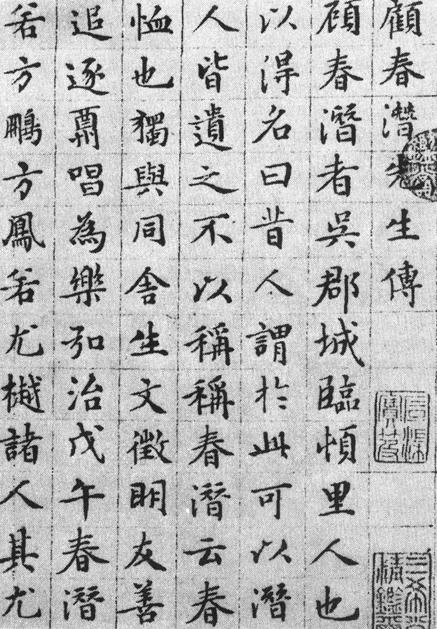 顧春潛先生傳
頋春潛者吳郡城臨頓里人也
以得名曰昔人謂於此可以潛
人皆遺之不以稱稱春潛云春
恤也獨與同舍生文徵明友善
追逐賡唱為樂弘治戊午春潛
若方鵬方鳳若尤樾諸人其尤
石渠寶笈
三希堂精鑑璽